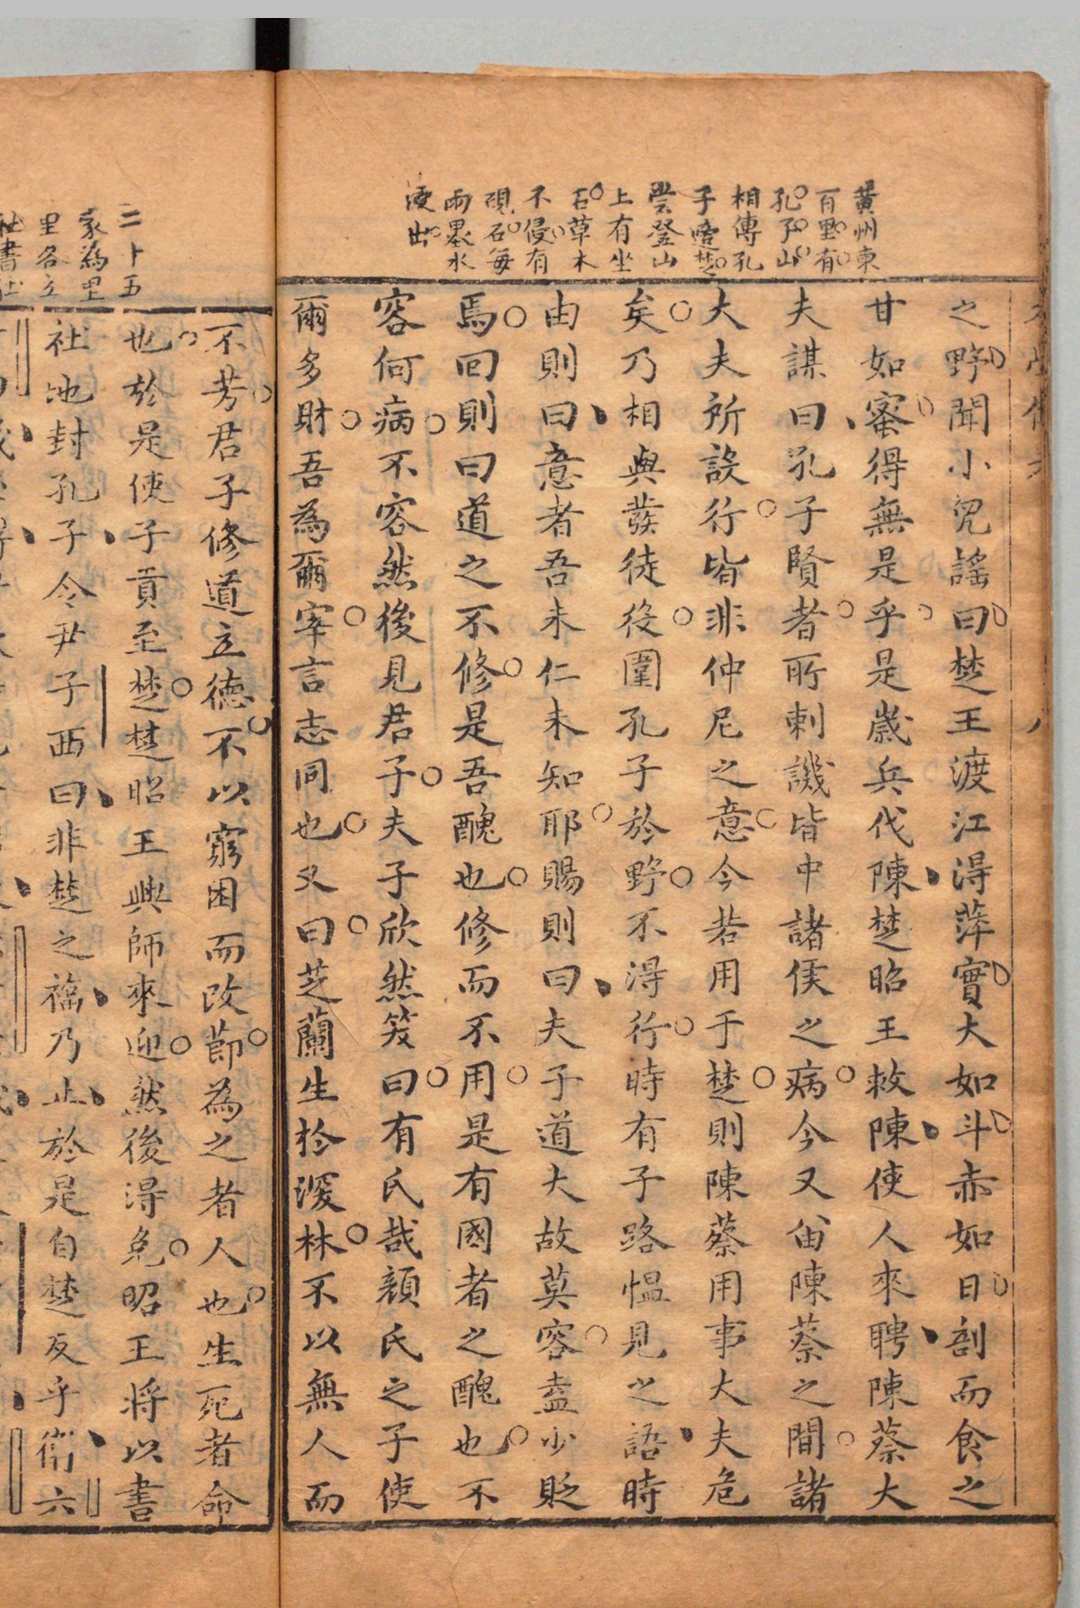 黄州東
百里有
孔子山
相傳孔
子適楚
嘗登山
上有坐
石草木
不侵有
硯石每
雨墨水
浸出
之野聞小兒謡曰楚王渡江得萍實大如斗赤如日剖而食之
甘如蜜得無是乎是歲兵伐陳楚昭王救陳使人來聘陳蔡大
夫謀曰孔子賢者所刺譏皆中諸侯之病今又留陳蔡之間諸
大夫所設行皆非仲尼之意今若用于楚則陳蔡用事大夫危
矣乃相與發徒役圍孔子於野不得行時有子路愠見之語時
由則曰意者吾未仁未知耶賜則曰夫子道大故莫容盍少貶
焉回則曰道之不修是吾醜也修而不用是有國者之醜也不
容何病不容然後見君子夫子欣然笑曰有氏哉顔氏之子使
爾多財吾為爾宰言志同也又曰芝蘭生於深林不以無人而
二十五
家為里
里各立
社書社
不芳君子修道立德不以窮困而改節為之者人也生死者命
也於是使子貢至楚楚昭王興師來迎然後得免昭王將以書
社地封孔子令尹子西曰非楚之福乃止於是自楚反乎衛六